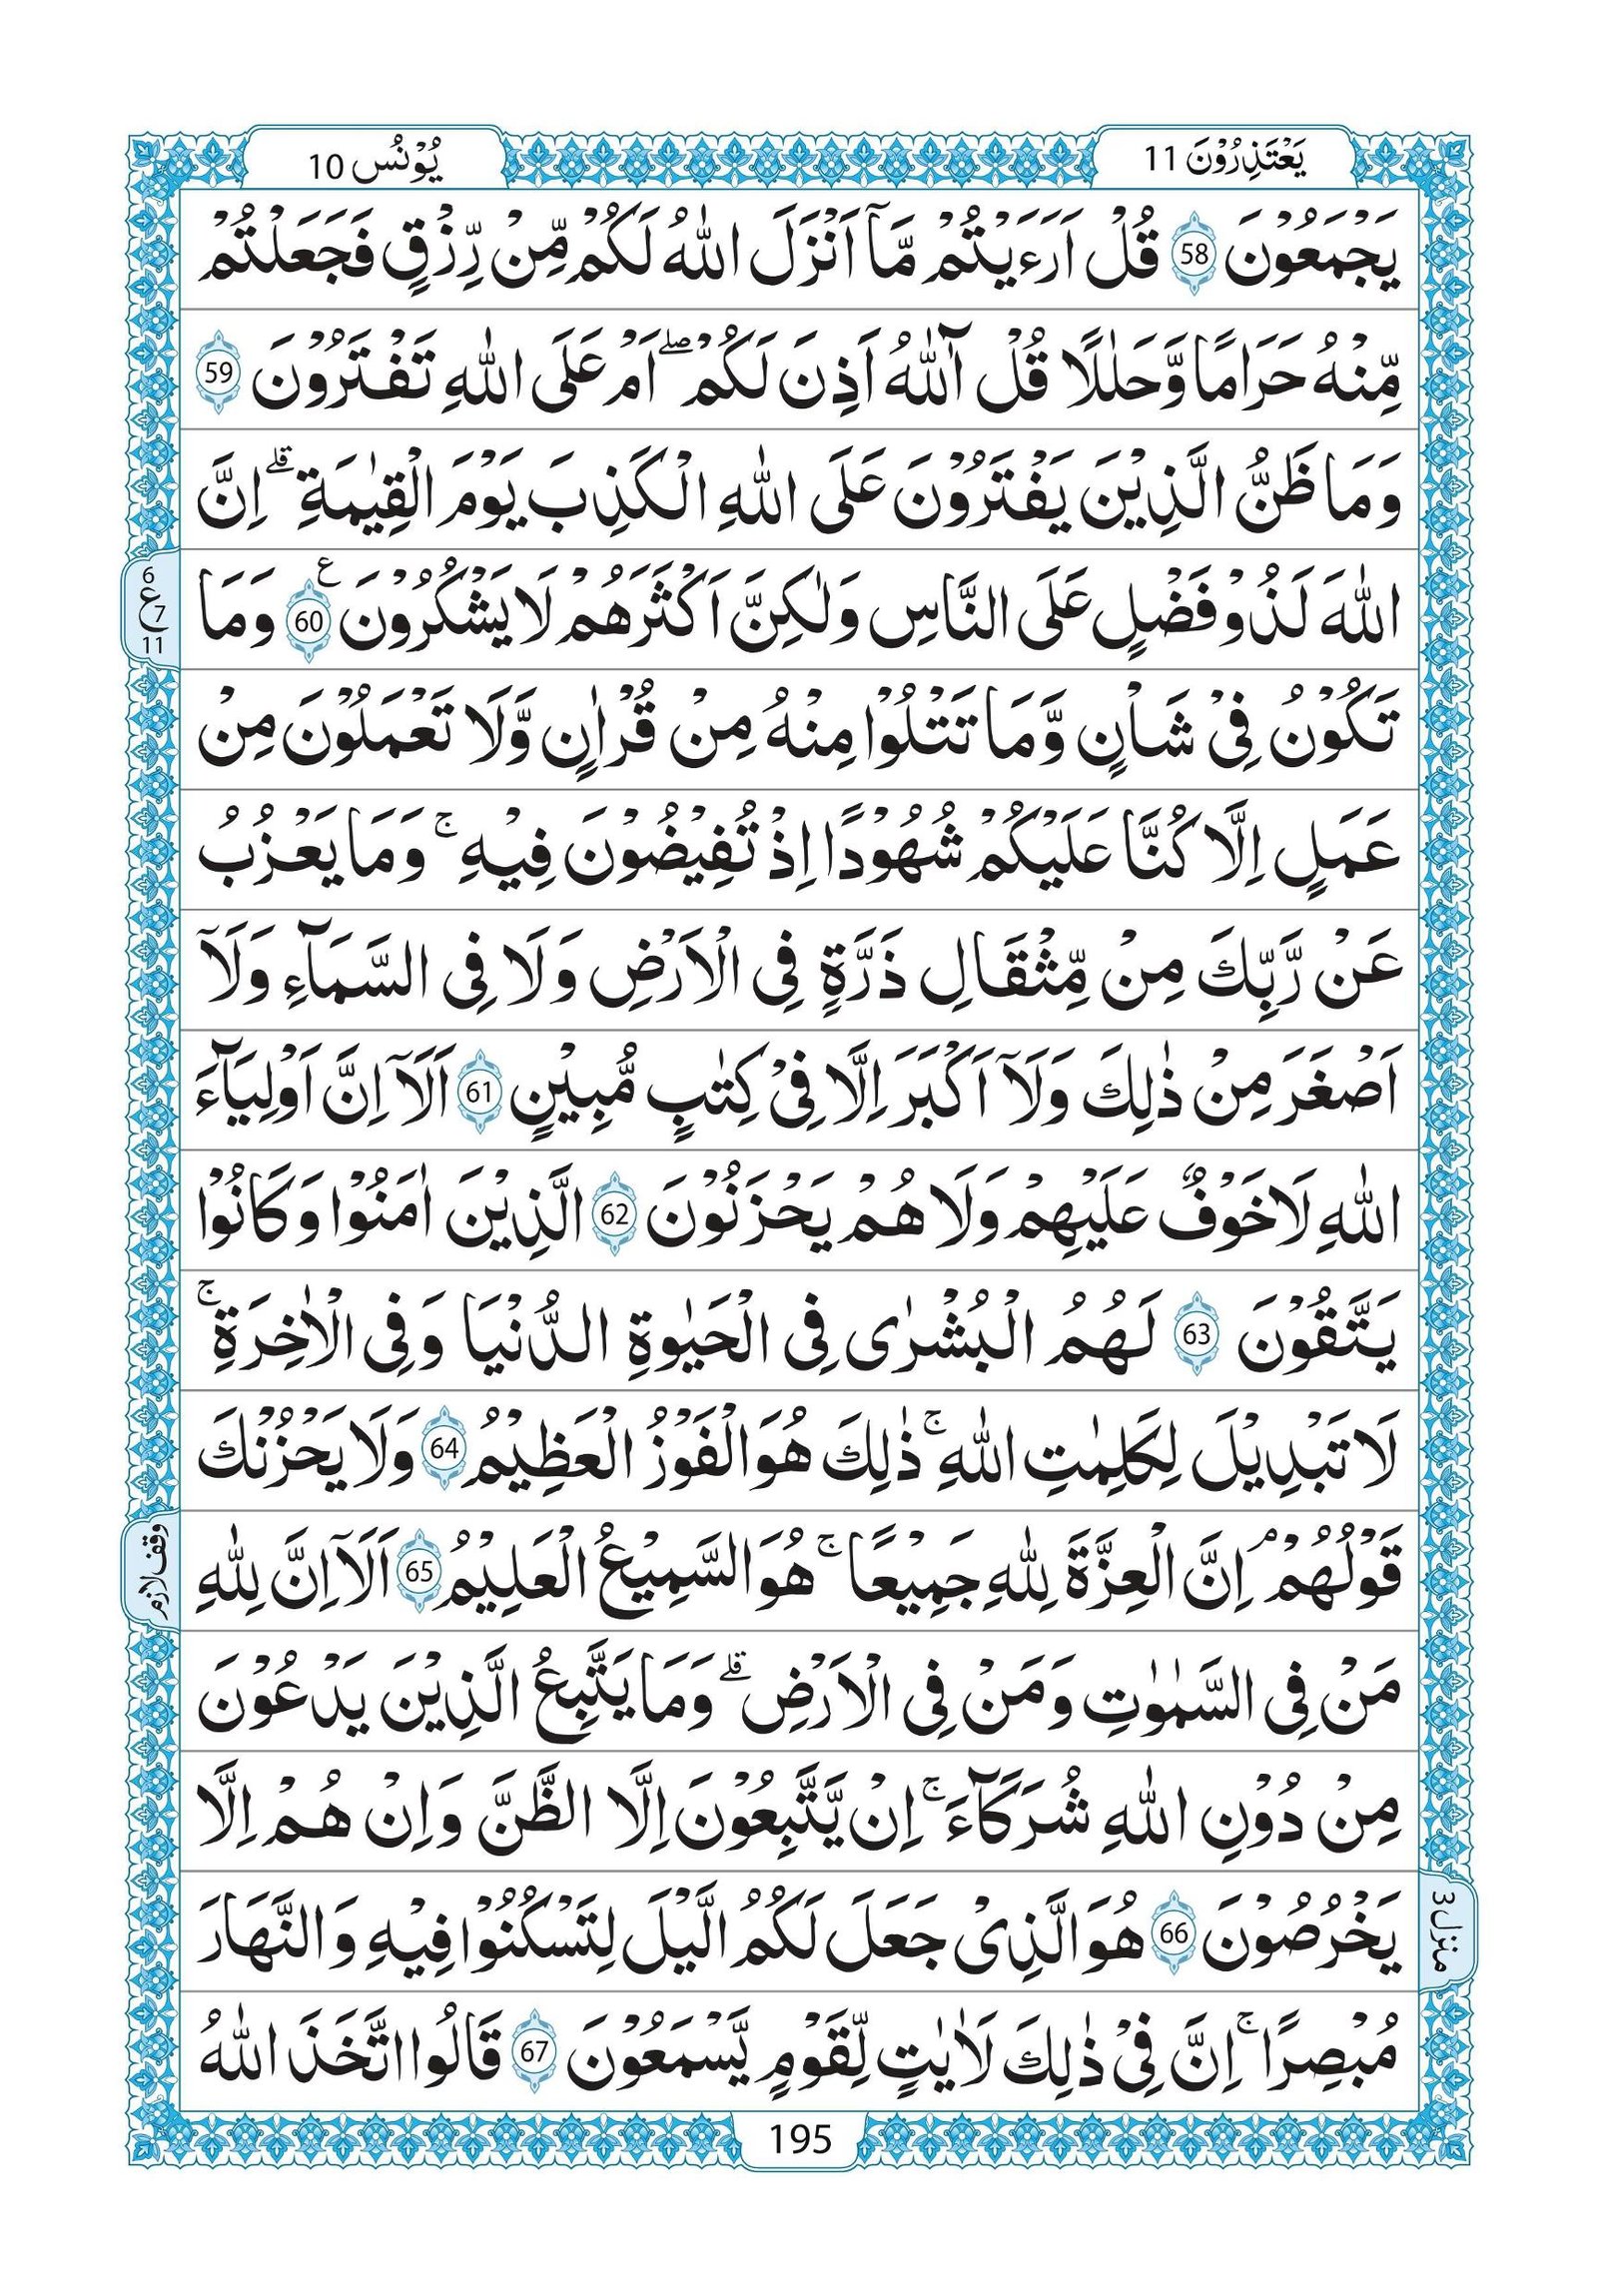 يَعْتَذِرُوْنَ 11
يُوْنُس 10
يَجْمَعُوْنَ 58 قُلْ اَرَءَيْتُمْ مَّآ اَنْزَلَ اللّٰهُ لَكُمْ مِّنْ رِّزْقٍ فَجَعَلْتُمْ
مِّنْهُ حَرَامًا وَّحَلٰلًا قُلْ آٰللّٰهُ اَذِنَ لَكُمْ ۖ اَمْ عَلَى اللّٰهِ تَفْتَرُوْنَ 59
وَمَا ظَنُّ الَّذِيْنَ يَفْتَرُوْنَ عَلَى اللّٰهِ الْكَذِبَ يَوْمَ الْقِيٰمَةِ ۗ اِنَّ
اللّٰهَ لَذُوْ فَضْلٍ عَلَى النَّاسِ وَلٰكِنَّ اَكْثَرَهُمْ لَا يَشْكُرُوْنَ 60 ع وَمَا
6
ع 7
11
تَكُوْنُ فِيْ شَاْنٍ وَّمَا تَتْلُوْا مِنْهُ مِنْ قُرْاٰنٍ وَّلَا تَعْمَلُوْنَ مِنْ
عَمَلٍ اِلَّا كُنَّا عَلَيْكُمْ شُهُوْدًا اِذْ تُفِيْضُوْنَ فِيْهِ ۚ وَمَا يَعْزُبُ
عَنْ رَّبِّكَ مِنْ مِّثْقَالِ ذَرَّةٍ فِى الْاَرْضِ وَلَا فِى السَّمَآءِ وَلَآ
اَصْغَرَ مِنْ ذٰلِكَ وَلَآ اَكْبَرَ اِلَّا فِيْ كِتٰبٍ مُّبِيْنٍ 61 اَلَآ اِنَّ اَوْلِيَآءَ
اللّٰهِ لَا خَوْفٌ عَلَيْهِمْ وَلَا هُمْ يَحْزَنُوْنَ 62 الَّذِيْنَ اٰمَنُوْا وَكَانُوْا
يَتَّقُوْنَ 63 لَهُمُ الْبُشْرٰى فِى الْحَيٰوةِ الدُّنْيَا وَفِى الْاٰخِرَةِ ۚ
لَا تَبْدِيْلَ لِكَلِمٰتِ اللّٰهِ ۚ ذٰلِكَ هُوَ الْفَوْزُ الْعَظِيْمُ 64 وَلَا يَحْزُنْكَ
قَوْلُهُمْ ۘ اِنَّ الْعِزَّةَ لِلّٰهِ جَمِيْعًا ۚ هُوَ السَّمِيْعُ الْعَلِيْمُ 65 اَلَآ اِنَّ لِلّٰهِ
وقف لازم
مَنْ فِى السَّمٰوٰتِ وَمَنْ فِى الْاَرْضِ ۗ وَمَا يَتَّبِعُ الَّذِيْنَ يَدْعُوْنَ
مِنْ دُوْنِ اللّٰهِ شُرَكَآءَ ۚ اِنْ يَّتَّبِعُوْنَ اِلَّا الظَّنَّ وَاِنْ هُمْ اِلَّا
يَخْرُصُوْنَ 66 هُوَ الَّذِيْ جَعَلَ لَكُمُ الَّيْلَ لِتَسْكُنُوْا فِيْهِ وَالنَّهَارَ
منزل 3
مُبْصِرًا ۚ اِنَّ فِيْ ذٰلِكَ لَاٰيٰتٍ لِّقَوْمٍ يَّسْمَعُوْنَ 67 قَالُوا اتَّخَذَ اللّٰهُ
195